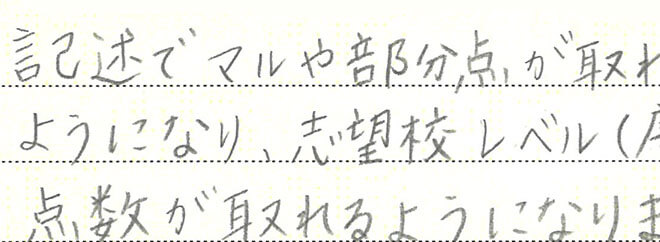 記述でマルや部分点が取れ
ようになり、志望校レベル(
点数が取れるようになりま